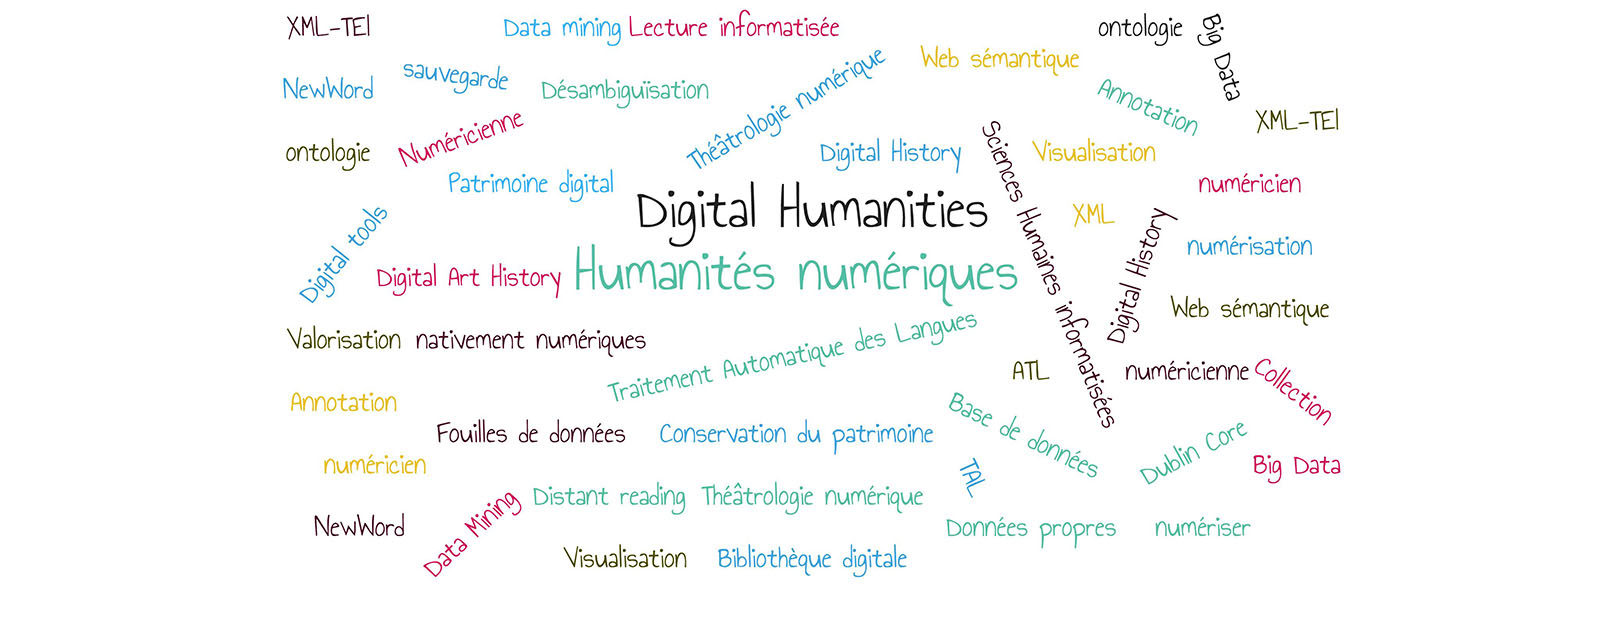 XML-TEI
Data mining
Lecture informatisée
ontologie
Big Data
Web sémantique
sauvegarde
NewWord
Désambiguïsation
Théâtrologie numérique
Annotation
XML-TEI
Numéricienne
ontologie
Digital History
Visualisation
Patrimoine digital
numéricien
Sciences Humaines informatisées
Digital Humanities
XML
Digital tools
Digital History
numérisation
Digital Art History
Humanités numériques
Web sémantique
Valorisation
nativement numériques
Traitement Automatique des Langues
ATL
numéricienne
Collection
Annotation
Fouilles de données
Conservation du patrimoine
Base de données
Dublin Core
numéricien
Big Data
TAL
Distant reading
Théâtrologie numérique
NewWord
Data Mining
Données propres
numériser
Visualisation
Bibliothèque digitale